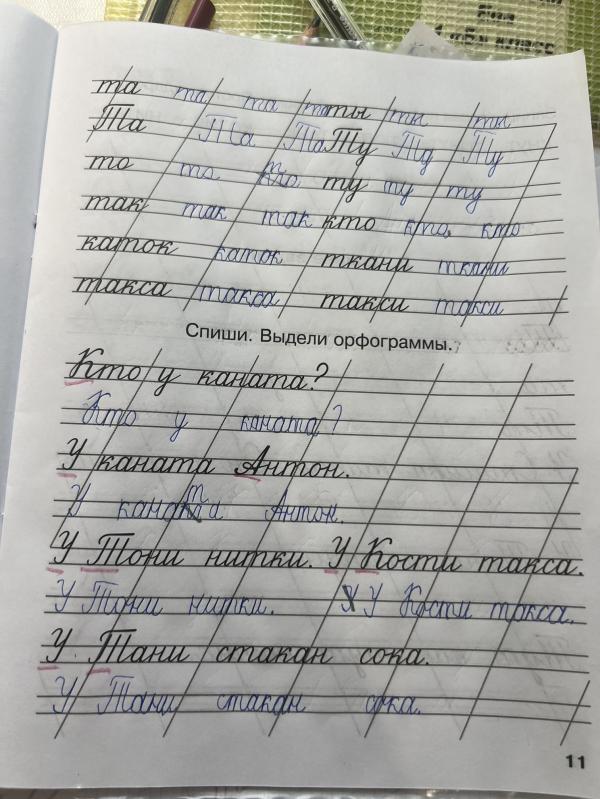 1 «Б» класс
та та та ты ты ты
Та Та Та Ту Ту Ту
то то то ту ту ту
так так так кто кто кто
каток каток ткани ткани
такса такса такси такси
Спиши. Выдели орфограммы.
Кто у каната?
Кто у каната?
У каната Антон.
У каната Антон.
У Тони нитки. У Кости такса.
У Тони нитки. У У Кости такса.
У Тани стакан сока.
У Тани стакан сока.
11